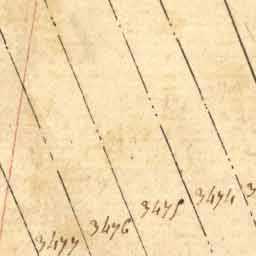 3477
3476
3475
3474